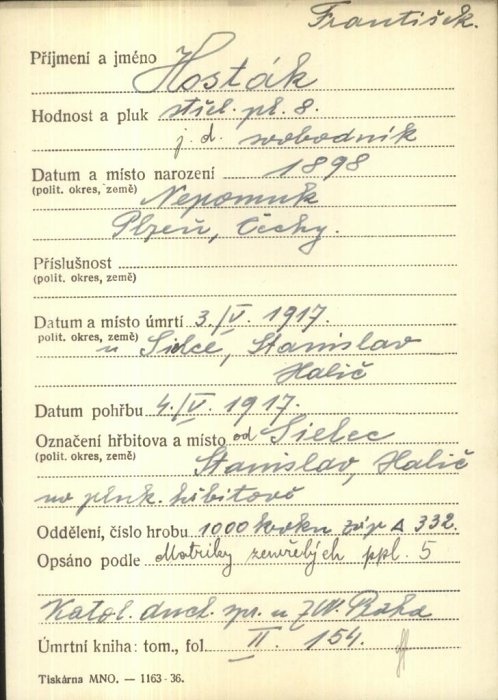 František.
Příjmení a jméno Hosták
Hodnost a pluk střel. pl. 8.
j. d. svobodník
Datum a místo narození 1898
(polit. okres, země) Nepomuk
Plzeň, Čechy.
Příslušnost
(polit. okres, země)
Datum a místo úmrtí 3./V. 1917.
polit. okres, země) u Sielce, Stanislav
Halič
Datum pohřbu 4./V. 1917.
Označení hřbitova a místo od Sielec
(polit. okres, země) Stanislav, Halič
na pluk. hřbitově
Oddělení, číslo hrobu 1000 kroků záp △ 332.
Opsáno podle Matriky zemřelých ppl. 5
Katol. duch. spr. u ZVV. Praha
Úmrtní kniha: tom., fol. II. 154.
Tiskárna MNO. — 1163-36.